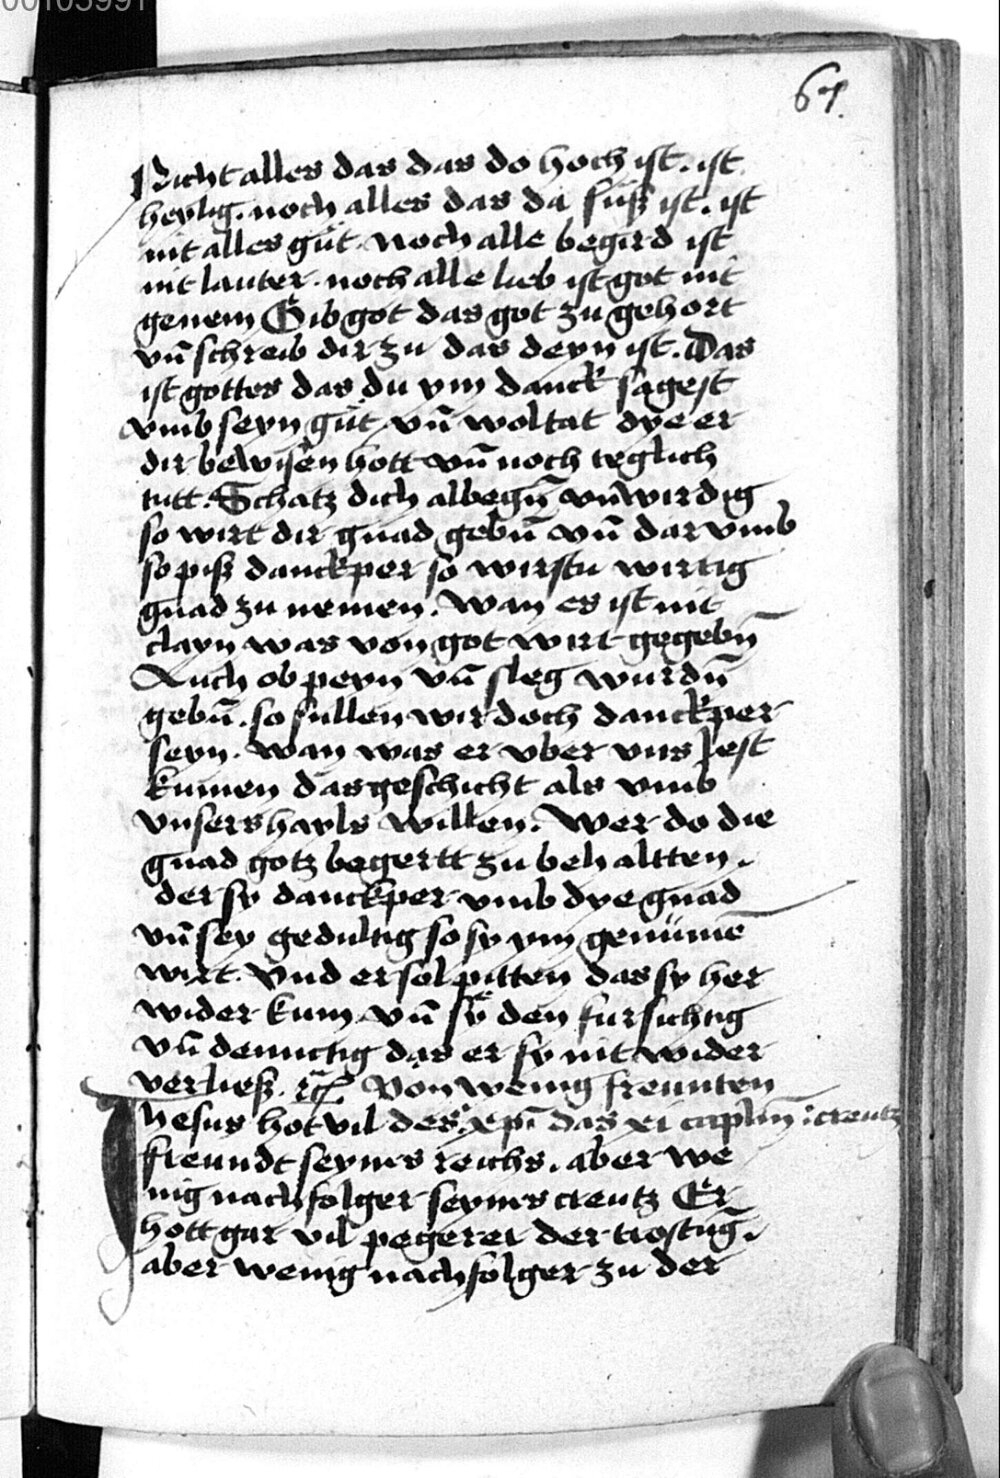 00103991
67.
Nicht alles das das do hoch ist. ist
heylig. noch alles das da suß ist. ist
nit alles gůt. Noch alle begird ist
nit lauter. noch alle lieb ist got nit
genem Gib got das got zu gehort
vn̄ schreib dir zu das deyn ist. Das
ist gottes das du ym danck sagest
vmb seyn gůt vn̄ woltat dye er
dir bewisen hott vn̄ noch teglich
tutt. Schatz dich albegn̄ vnwirdig
so wirt dir gnad gebn̄ vn̄ dar vmb
so piß danckper so wirstu wirtig
gnad zu nemen. Wan es ist nit
clayn was von got wirt gegebn̄
Auch ob peyn vn̄ sleg wurdn̄
gebn̄. so sullen wir doch danckper
seyn. Wan was er vber vns lest
kumen das geschicht als vmb
vnsers hayls willen. Wer do die
gnad gotz begertt zu behaltten.
der sy danckper vmb dye gnad
vn̄ sey gedultig so sy ym genūme
wirt. Vnd er sol pitten das sy her
wider kum vn̄ sy den fursichtig
vn̄ demuctig das er sy nit wider
verließ. Von wenig freunten
Ihesus hot vil des xp̄i das xi caplm̄ creutz
freundt seyns reichs. aber we
nig nachfolger seyns creutz Er
hott gar vil pegerer der trostūg.
aber wenig nachfolger zu der